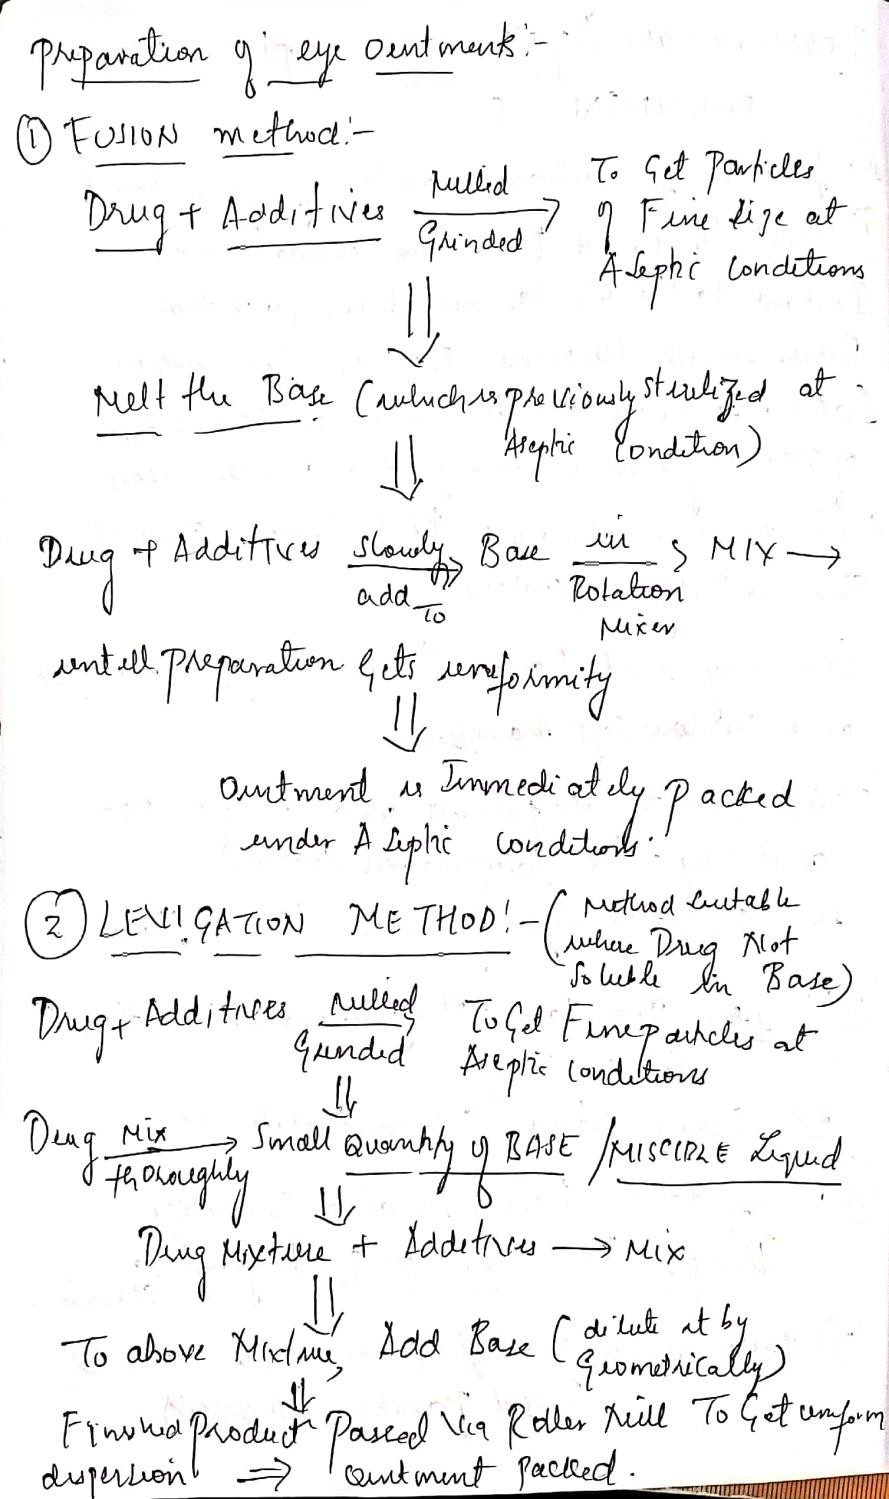 Preparation of eye Ointment:-
① FUSION method:-
Drug + Additives Milled Grinded → To Get Particles
of Fine size at
Aseptic conditions
⇓
Melt the Base (which is previously sterilized at
Aseptic Condition)
⇓
Drug + Additives slowly add To → Base in Rotation Mixer → MIX →
untill preparation Gets uniformity
⇓
Ointment is Immediately Packed
under Aseptic conditions.
② LEVIGATION METHOD:- (Method suitable
where Drug Not
Soluble In Base)
Drug + Additives Milled Grinded → To Get Fine particles at
Aseptic conditions
⇓
Drug Mix thoroughly → Small Quantity of BASE / MISCIBLE Liquid
⇓
Drug Mixture + Additives → Mix
⇓
To above Mixture, Add Base (dilute it by
Geometrically)
⇓
Finished Product Passed Via Roller Mill To Get uniform
dispersion ⇒ Ointment Packed.